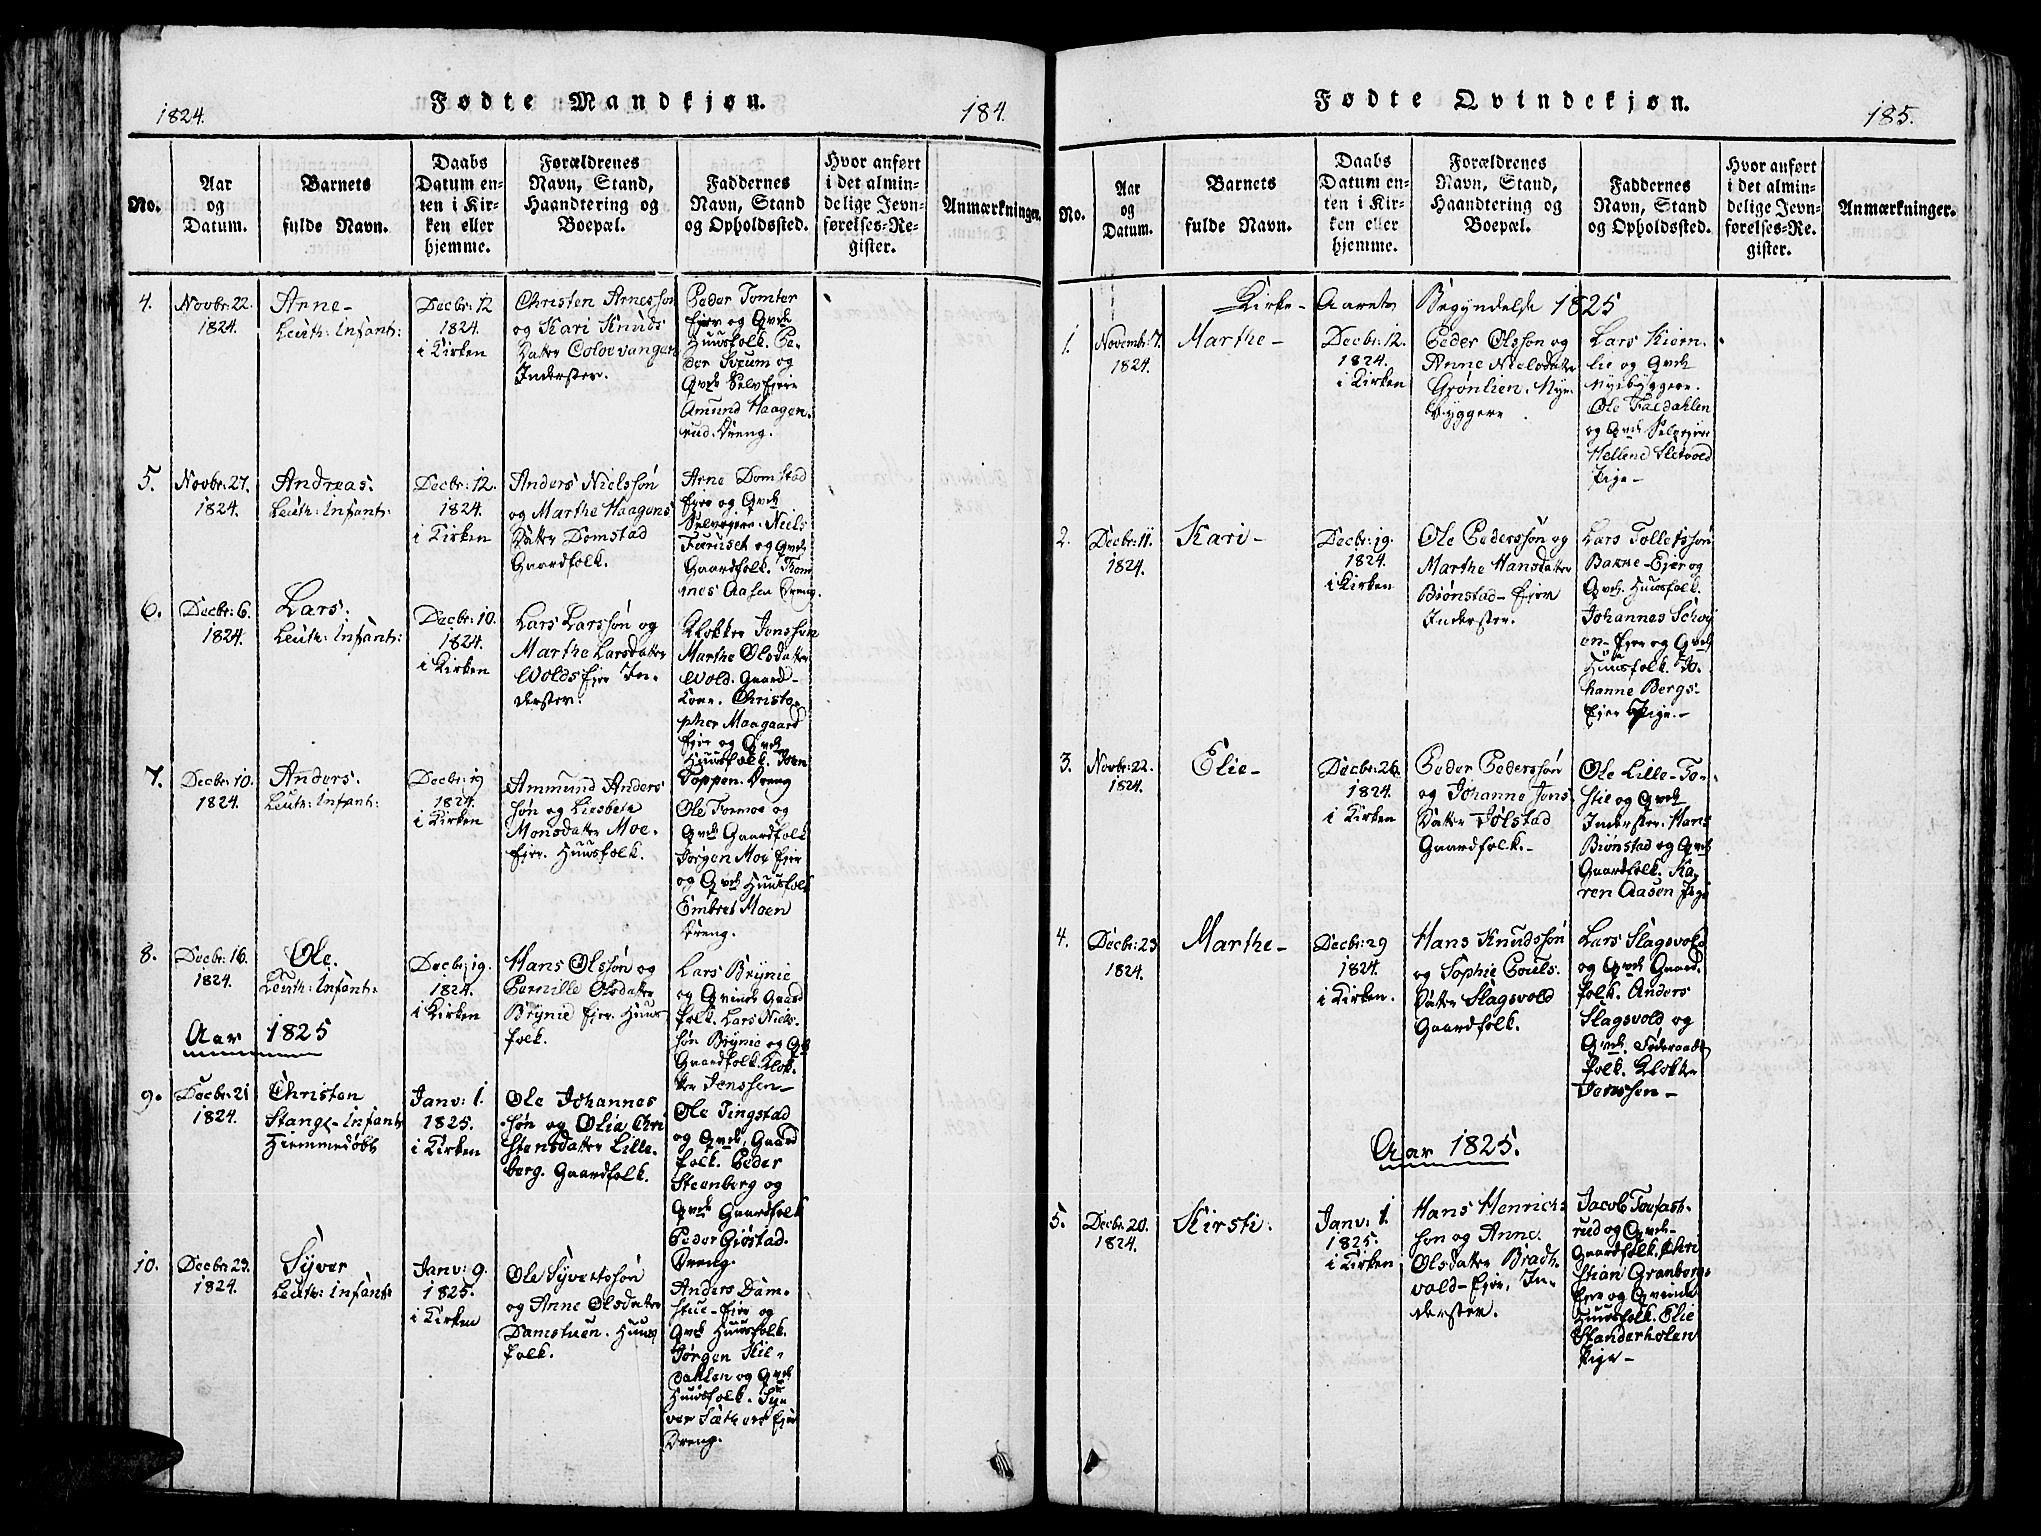 1824.
Fødte Mandkjøn.
184.
No.
Aar
og
Datum.
Barnets
fulde Navn.
Daabs
Datum en-
ten i Kir-
ken eller
hjemme.
Forældrenes
Navn, Stand,
Haandtering og
Boepæl.
Faddernes
Navn, Stand
og Opholdssted.
Hvor anført
i det almin-
delige Jevn-
førelses-Re-
gister.
Anmærkninger.
4.
Novbr: 22.
1824.
Arne-
Leuth: Infants:
Decbr: 12
1824.
i Kirken
Christen Arnessøn
og Kari Knuds
Datter
Inderster.
Peder Tomter
Ejer og Qvde
Huusfolk. Pe-
der Sveum og
Qvde Selvejere
Amund Haagen-
rud. Dreng.
5.
Novbr: 27.
1824.
Andreas.
Leuth: Infants:
Decbr: 12.
1824.
i Kirken
Anders Nielssøn
og Marthe Haagens
Datter Domstad
Gaardfolk.
Arne Domstad
Ejer og Qvde
Selvegere. Niels
Faruset og Qvde
Gaardfolk. Tom
mes Aasen Dreng.
6.
Decbr: 6.
1824.
Lars.
Leuth: Infants:
Decbr: 10.
1824.
i Kirken
Lars Larssøn og
Marthe Larsdatter
Wolds Ejer In-
derster.
Klokker Jonssøn
Marthe Olsdatter
Wold. Gaard-
Kone. Christo-
pher Maagaard
Ejer og Qvde
Huusfolk. Iven
Toppen. Dreng
7.
Decbr: 10.
1824.
Anders.
Leuth: Infants:
Decbr: 19
1824.
i Kirken
Ammund Anders
søn og Liesbeth
Monsdatter Moe-
Ejer. Huusfolk.
Ole Tormoe og
Qvde Gaardfolk
Jørgen Moe Ejer
og Qvde Huusfolk
Embret Moen
Dreng.
8.
Decbr: 16.
1824.
Ole.
Leuth: Infants:
Decbr: 19.
1824.
i Kirken
Hans Olssøn og
Pernille Olsdatter
Brynie Ejer. Huus
folk.
Lars Brynie
og Qvinde Gaard
folk. Lars Niels-
søn Brynie og Qvde
Gaardfolk. Klok-
ker Jonssen-
Aar 1825
9.
Decbr: 21
1824.
Christen
Stange-Infants
Hiemmedøbt
Janv: 1.
1825.
i Kirken
Ole Johannes
søn og Olia Chri
stensdatter Lille-
berg. Gaardfolk.
Ole Tingstad
og Qvde, Gaard
folk. Peder
Steenberg og
Qvde Gaardfolk
Peder Giøstad.
Dreng.
10.
Decbr: 23.
1824.
Syver
Leuth: Infants
Janv: 9.
1825.
i Kirken
Ole Syvertssøn
og Anne Olsdatter
Damstuen. Huus
folk.
Anders Dam-
stue-Ejer og
Qvde Huusfolk.
Jørgen Skie-
dahlen og Qvde
Huusfolk. Sy-
ver Sæther Ejer
Dreng.
Fødte Qvindekjøn.
185.
No.
Aar
og
Datum.
Barnets
fulde Navn.
Daabs
Datum en-
ten i Kir-
ken eller
hjemme.
Forældrenes
Navn, Stand,
Haandtering og
Boepæl.
Faddernes
Navn, Stand
og Opholdssted.
Hvor anført
i det almin-
delige Jevn-
førelses-Re-
gister.
Anmærkninger.
Kirke- Aarets Begyndelse 1825
1.
Novembr: 7.
1824.
Marthe-
Decbr: 12.
1824.
i Kirken
Peder Olssøn og
Anne Nielsdatter
Grønlien. Nye-
byggere
Lars Kiern-
lie og Qvde
Nyebyggere.
Ole Faldahlen
og Qvde Selvejere
Hellene Sletvold
Pige-
2.
Decbr: 11.
1824.
Kari-
Decbr: 19.
1824.
i Kirken
Ole Pederssøn og
Marthe Hansdatter
Biønstad- Ejer
Inderster.
Lars Tollefssøn
Bakke-Ejer og
Qvde. Huusfolk.
Johannes Schøy
en- Ejer og Qvde
Huusfolk. Jo-
hanne Bergs-
Ejer Pige.-
3.
Novbr: 22.
1824.
Elie-
Decbr: 26.
1824.
i Kirken
Peder Pederssøn
og Johanne Jons
Datter Jølstad
Gaardfolk.-
Ole Lille-To-
stie og Qvde
Inderster. Hans
Biønstad og Qvde
Gaardfolk. Ka-
ren Aasen Pige
4.
Decbr: 23
1824.
Marthe-
Decbr: 29
1824.
i Kirken.
Hans Knudssøn
og Sophie Pouls-
Datter Slagsvold
Gaardfolk.
Lars Slagsvold
og Qvde Gaard-
folk. Anders
Slagsvold og
Qvde. Føderaads
folk. Klokker
Jonssen-
Aar 1825.
5.
Decbr: 20.
1824.
Kirsti.
Janv: 1.
1825.
i Kirken
Hans Henrich-
søn og Anne
Olsdatter Bradt-
vold-Ejer, In-
derster.
Jacob Torfast-
rud og Qvde-
Gaardfolk. Chri
stian Granbergs
Ejer og Qvinde
Huusfolk. Elie
Standerholen
Pige-